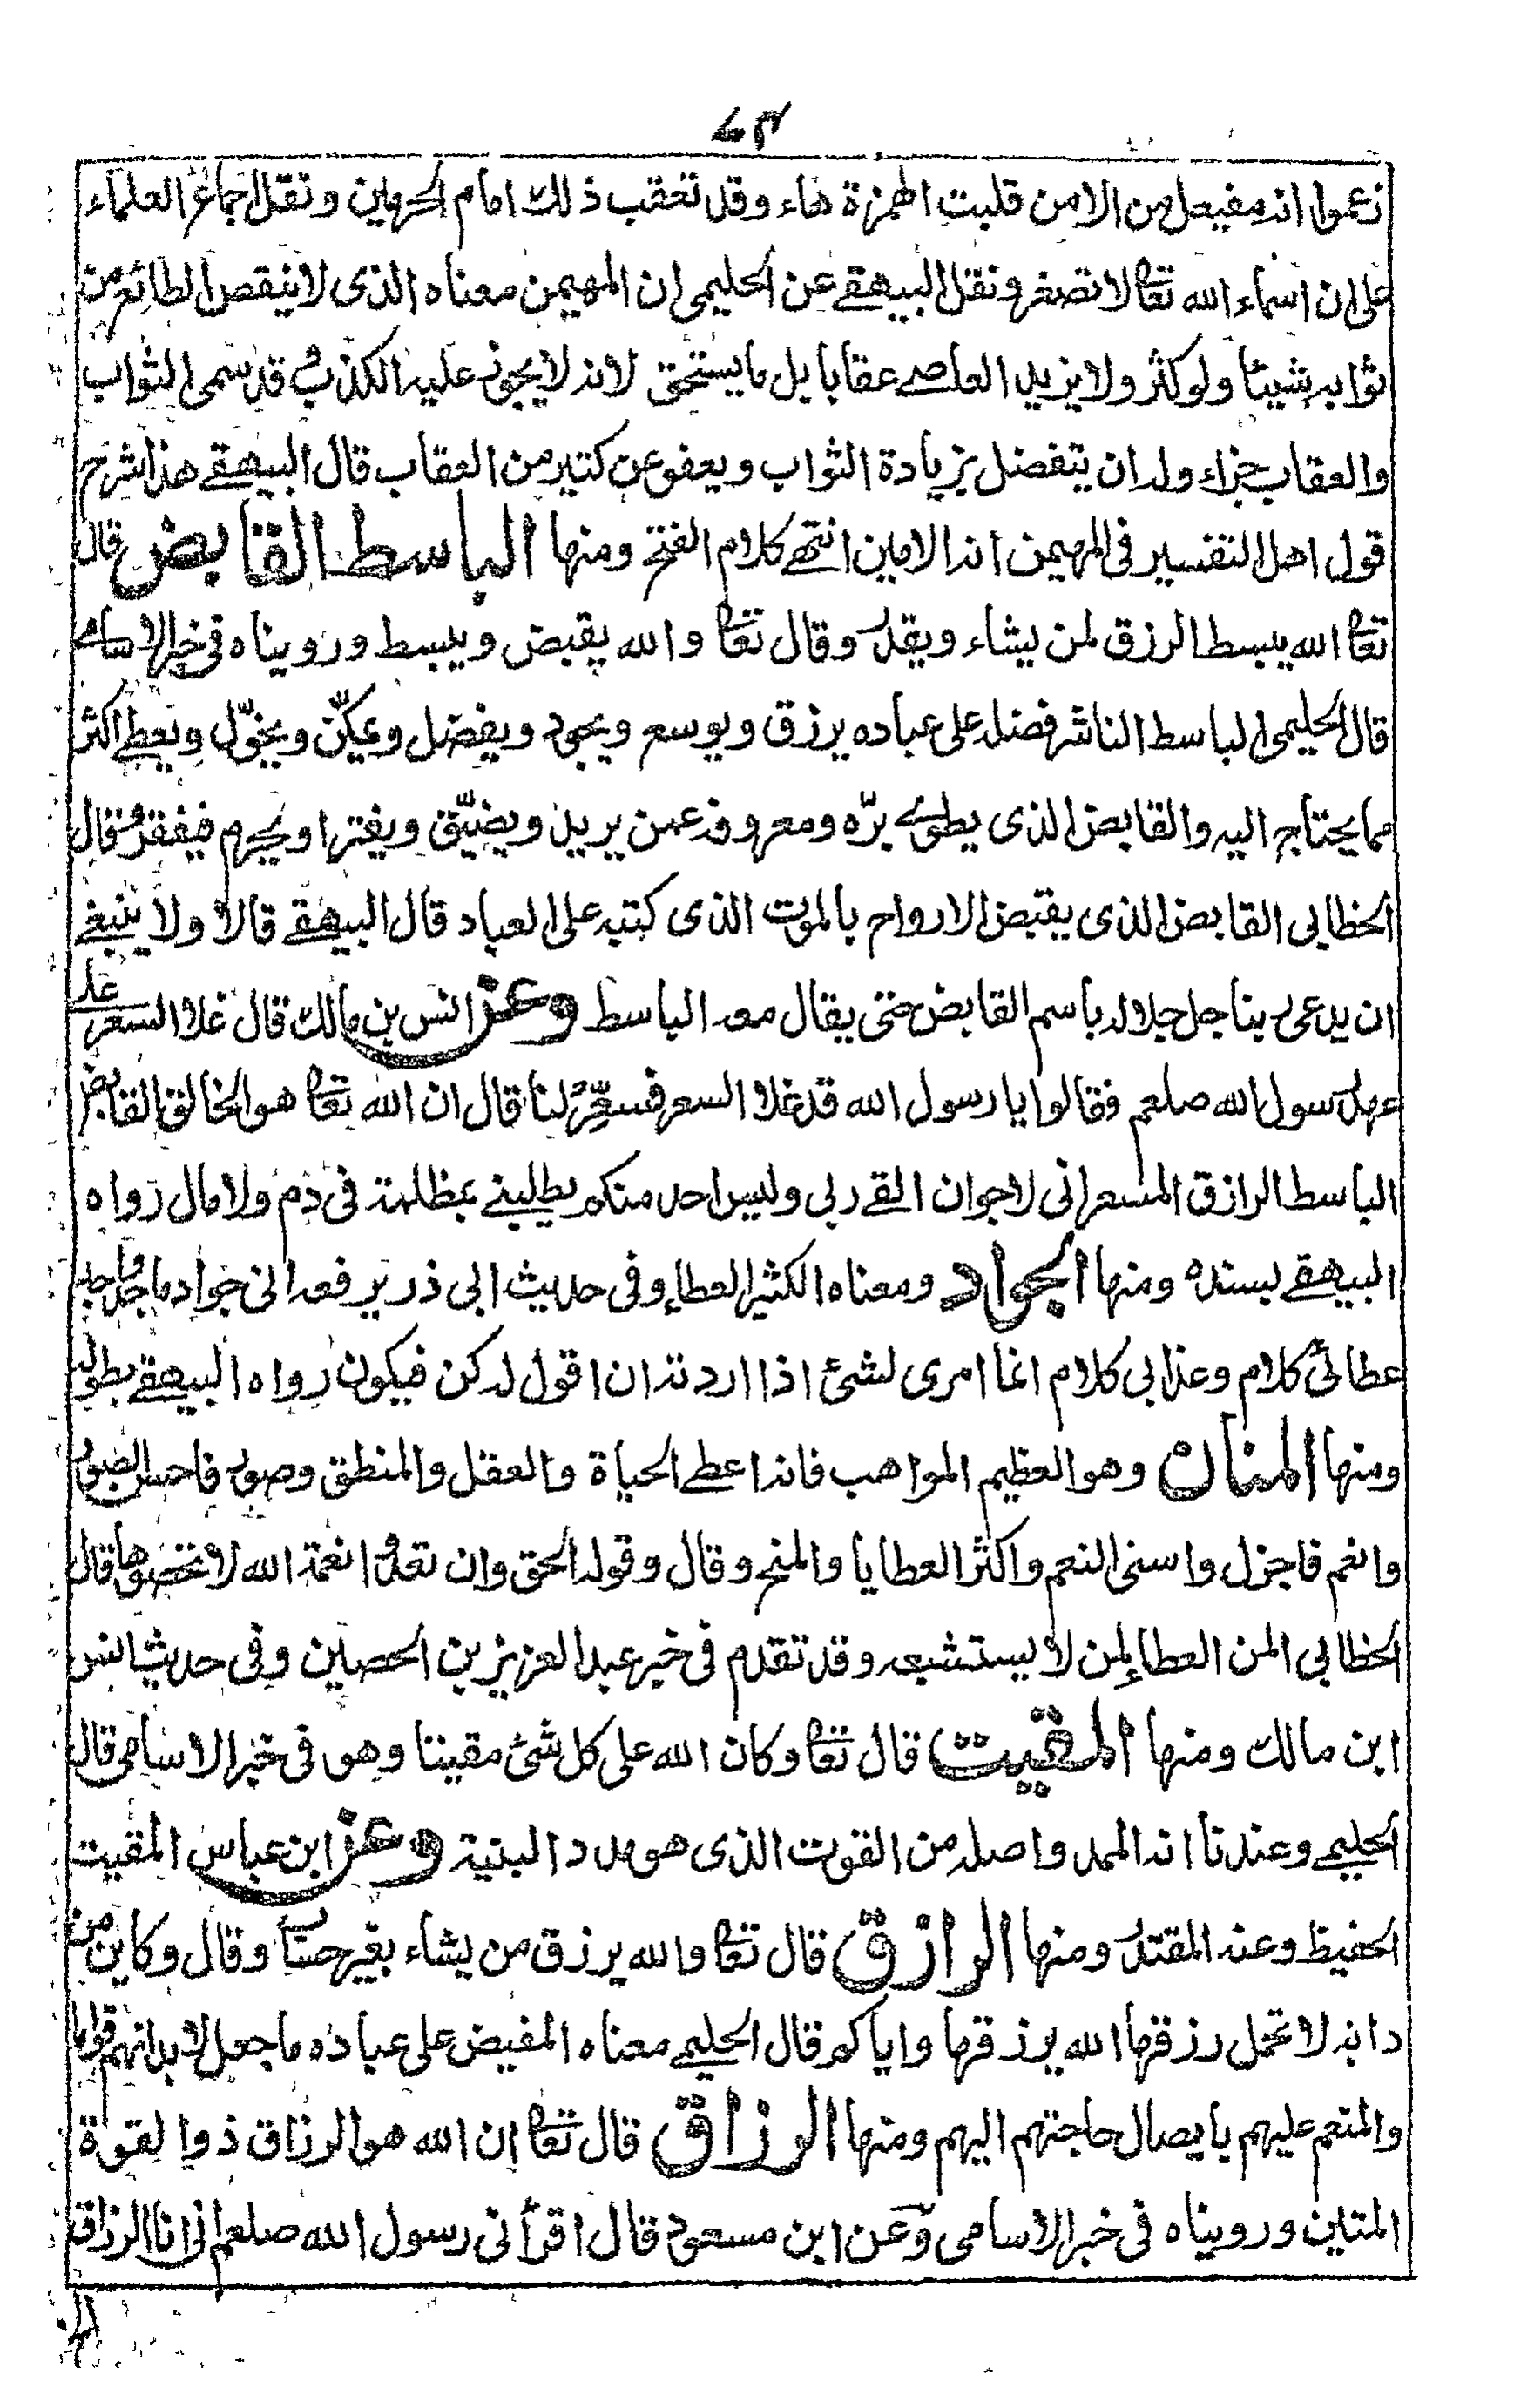 زعموا انه مفيعل من الامن قلبت الهمزة هاء وقد تعقب ذلك امام الحرمين ونقل اجماع العلماء
على ان اسماء الله تعا لا تصغر ونقل البيهقے عن الحليمى ان المهيمن معناه الذى لا ينقص الطائع من
ثوابه شيئا ولو كثر ولا يزيد العاصے عقابا بل ما يستحق لانه لا يجوز عليه الكذب قد سمى الثواب
والعقاب جزاء وله ان يتفضل بزيادة الثواب ويعفو عن كثير من العقاب قال البيهقے هذا شرح
قول اهل التفسير فى المهيمن انه الامين انتهے كلام الفتح ومنها الباسط القابض قال
تعا الله يبسط الرزق لمن يشاء ويقدر وقال تعا والله يقبض ويبسط ورويناه فى خبر الاسامے
قال الحليمى الباسط الناشر فضله على عباده يرزق ويوسع ويجود ويفضل ويمكّن ويخوّل ويعطے اكثر
مما يحتاج اليه والقابض الذى يطوے برّه ومعروفه عمن يريد ويضيّق ويقتر او يحرم فيفقر وقال
الخطابى القابض الذى يقبض الارواح بالموت الذى كتبه على العباد قال البيهقے قالا ولا ينبغے
ان يدعى ربنا جل جلاله باسم القابض حتى يقال معه الباسط وعن انس بن مالك قال غلا السعر على
عهد رسول الله صلعم فقالوا يا رسول الله قد غلا السعر فسعّر لنا قال ان الله تعا هو الخالق القابض
الباسط الرازق المسعر انى لارجو ان القے ربى وليس احد منكم يطلبنے بمظلمة فى دم ولا مال رواه
البيهقے بسنده ومنها الجواد ومعناه الكثير العطاء وفى حديث ابى ذر يرفعه انى جواد ماجد واجد
عطائى كلام وعذابى كلام انما امرى لشئ اذا اردته ان اقول له كن فيكون رواه البيهقے بطوله
ومنها المنان وهو العظيم المواهب فانه اعطے الحياة والعقل والمنطق وصور فاحسن الصور
وانعم فاجزل واسنى النعم واكثر العطايا والمنح وقال وقوله الحق وان تعدوا نعمة الله لا تحصوها قال
الخطابى المن العطاء لمن لا يستثيبه وقد تقدم فى خبر عبد العزيز بن الحصين وفى حديث انس
ابن مالك ومنها المقيت قال تعا وكان الله على كل شئ مقيتا وهو فى خبر الاسامى قال
الحليمے وعندنا انه الممد واصله من القوت الذى هو مدد البنية وعن ابن عباس المقيت
الحفيظ وعنه المقتدر ومنها الرازق قال تعا والله يرزق من يشاء بغير حساب وقال وكاين من
دابة لا تحمل رزقها الله يرزقها واياكم قال الحليمے معناه المفيض على عباده ما جعل لابدانهم قواما
والمنعم عليهم بايصال حاجتهم اليهم ومنها الرزاق قال تعا ان الله هو الرزاق ذوا لقوة
المتين ورويناه فى خبر الاسامى وعن ابن مسعود قال اقرأنى رسول الله صلعم انى انا الرزاق